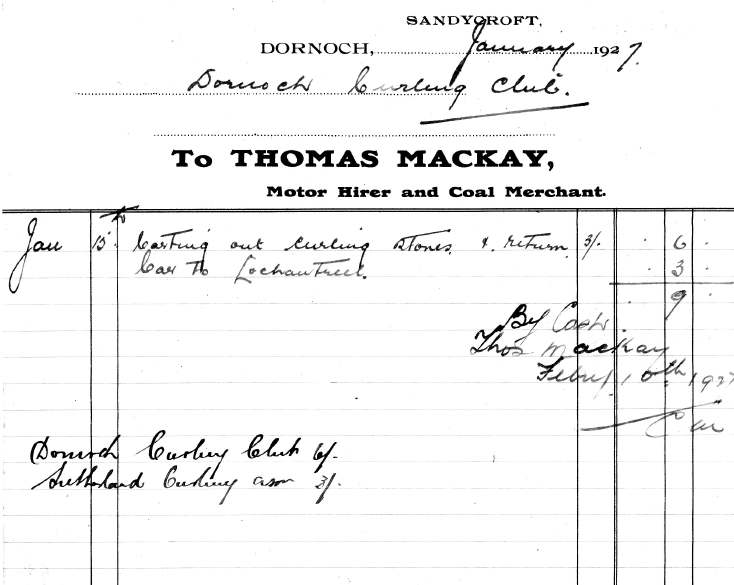 SANDYCROFT,
DORNOCH, January 1927.
Dornoch Curling Club.
To THOMAS MACKAY,
Motor Hirer and Coal Merchant.
Jan 15. Carting out curling stones. & return 3/. . 6 .
Car to . 3 .
. 9 .
By Cash.
Thos Mackay
Febry 10th 1927
Dornoch Curling Club 6/.
Sutherland Curling assn 3/.